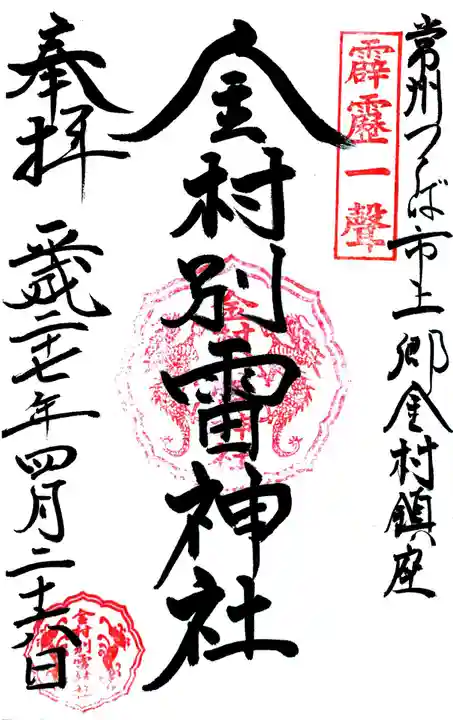 常州つくば市上郷金村鎮座
霹靂一聲
金村別雷神社
奉拝
平成二十七年四月二十六日
金村別雷